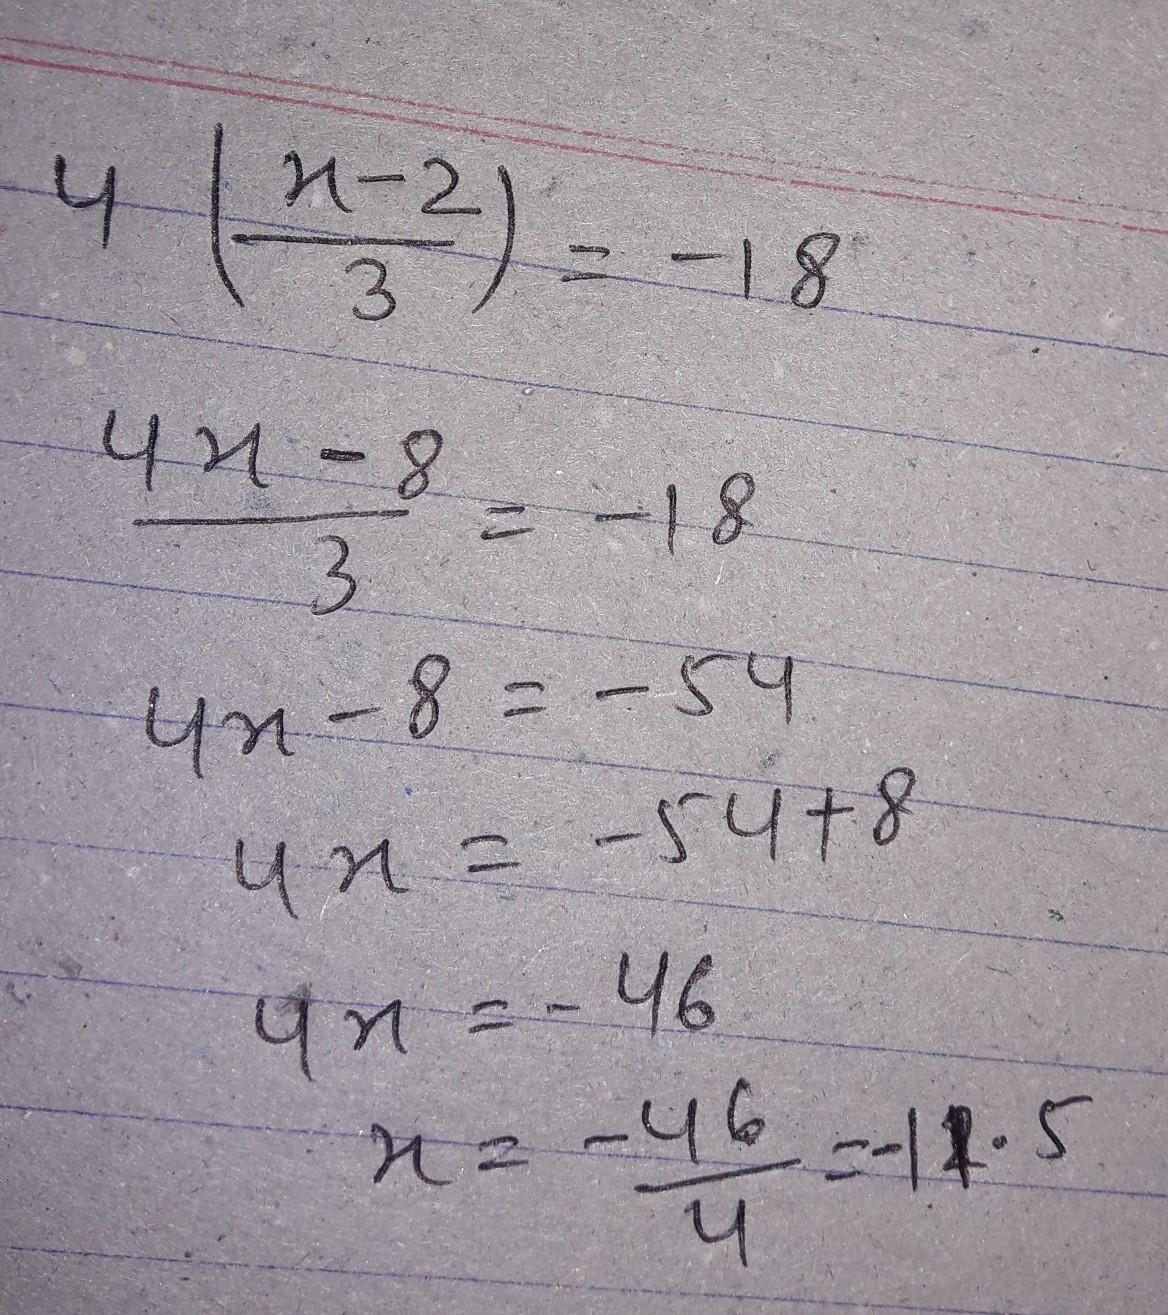 4 (x-2/3) = -18
4x-8/3 = -18
4x-8 = -54
4x = -54+8
4x = -46
x = -46/4 = -11.5